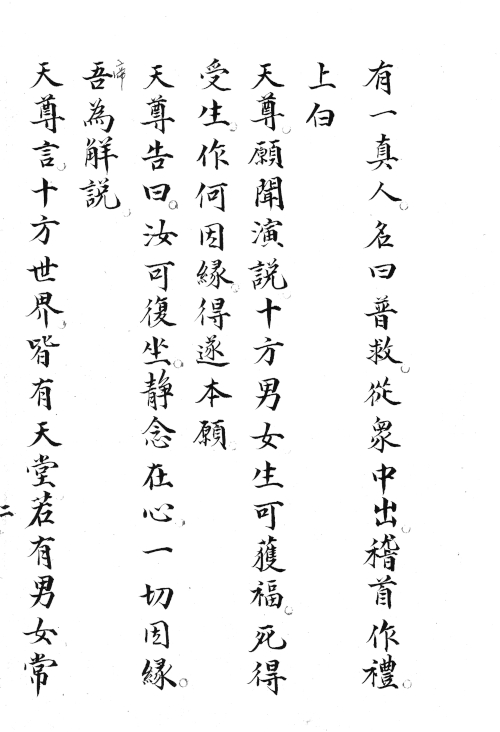 有一真人。名曰普救。從衆中出。稽首作禮。
上白
天尊。願聞演説。十方男女生可獲福。死得
受生。作何因緣。得遂本願。
天尊告曰。汝可復坐。静念在心。一切因緣。
吾為解説。
天尊言。十方世界。皆有天堂若有男女常
二